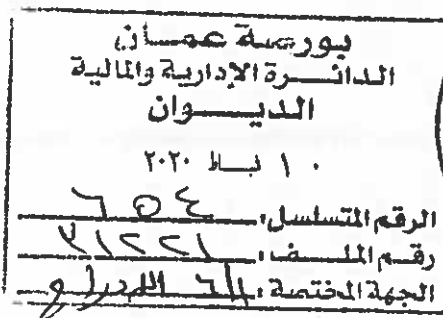 بورصة عمان
الدائرة الإدارية والمالية
الديوان
١٠ شباط ٢٠٢٠
الرقم المتسلسل: ٦٥٤
رقم الملف: ٣١٢٢١
الجهة المختصة: